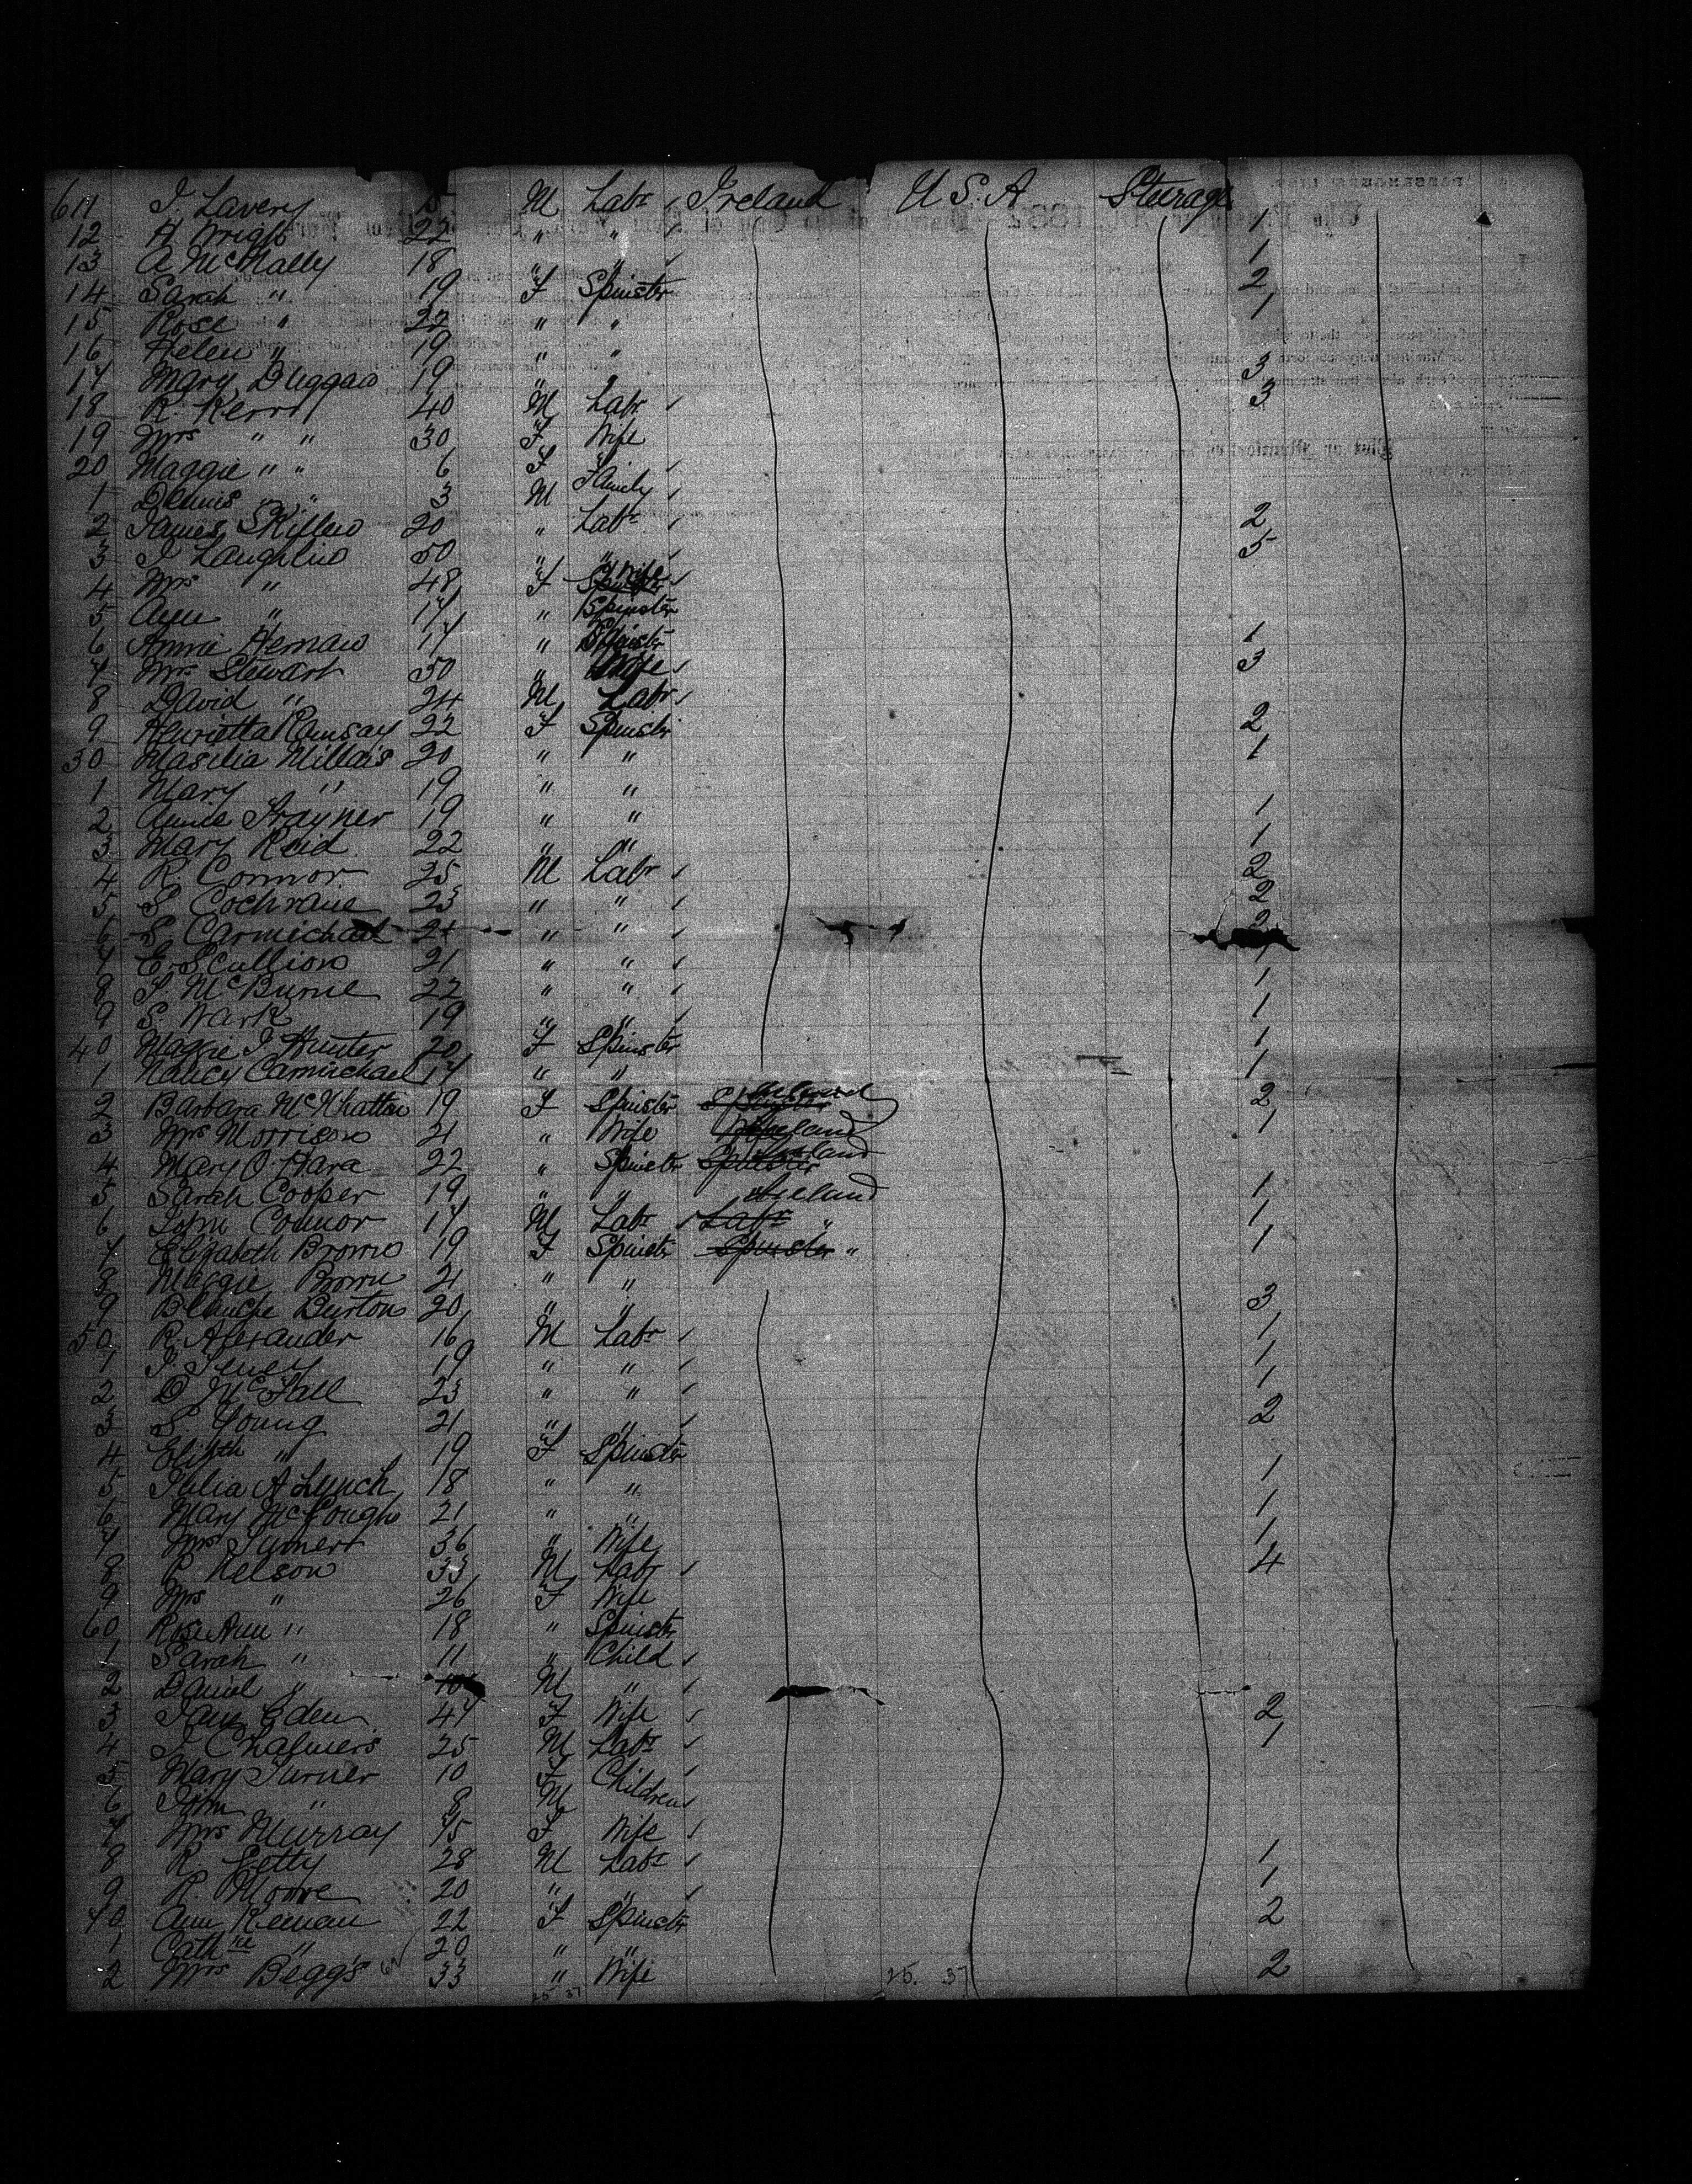 611 J Lavery M Labr Ireland U S. A Sturage
12 H Wright 22 " " 1
13 A McNally 18 " " 1
14 Sarah " 19 F Spinster 2
15 Rose " 22 " " 1
16 Helen " 19 " "
17 Mary 19 " " 3
18 R. Kerr 40 M Labr 3
19 Mrs " " 30 F Wife
20 Maggie " " 6 F "
1 Dennis " " 3 M Family
2 James 20 " Labr 2
3 J Laughlin 50 " " 5
4 Mrs " 48 F Wife
5 Ann " 17 " Spinster
6 Annie 17 " Spinster 1
7 Mrs Stewart 50 " Wife 3
8 David " 24 M Labr
9 Henrietta Ramsay 22 F Spinstr 2
30 Masilia Millais 20 " " 1
1 Mary " 19 " "
2 Annie Frayner 19 " " 1
3 Mary Reid 22 " " 1
4 R. Connor 25 M Labr 2
5 S Cochrane 23 " " 2
6 S Carmichael 21 " "
7 E. Scullion 21 " "
8 S McBurne 22 " " 1
9 S. Wark 19 " " 1
40 Maggie J Hunter 20 F Spinster 1
1 Nancy Carmichael 17 " " 1
2 Barbara 19 F Spinster Ireland 2
3 Mrs Morrison 21 " Wife Ireland 1
4 Mary O'Hara 22 " Spinster Spinster Ireland
5 Sarah Cooper 19 " " Ireland 1
6 John Connor 17 M Labr Labr " 1
7 Elizabeth Brown 19 F Spinstr Spinster " 1
8 Maggie Brown 21 " "
9 Blanche Burton 20 " " 3
50 R. Alexander 16 M Labr 1
1 19 " " 1
2 D McFall 23 " " 1
3 S Young 21 " " 2
4 Elizth " 19 F Spinster
5 Julia A Lynch 18 " " 1
6 Mary McGough 21 " " 1
7 Mrs 36 " Wife 1
8 R Nelson 33 M Labr 4
9 Mrs " 26 F Wife
60 Rose Ann " 18 " Spinstr
1 Sarah " 11 " Child
2 Daniel " 10 M "
3 Jane Eden 47 F Wife 2
4 J Chalmers 25 M Labr 1
5 Mary Turner 10 F Children
6 John " 8 M
7 Mrs Murray 45 F Wife
8 R. Getty 28 M Labr 1
9 R. Moore 20 " " 1
70 Ann 22 F Spinstr 2
1 Cathne " 20 " "
2 Mrs Beggs 33 " Wife 2
25 37 25. 37